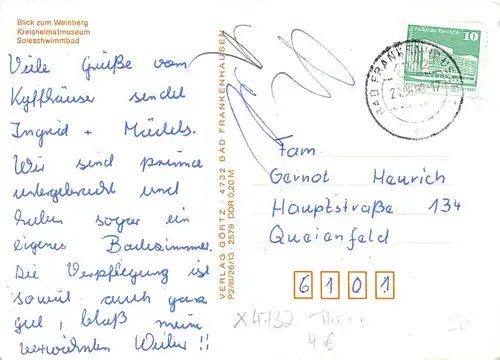 Blick zum Weinberg
Kreisheimatmuseum
Soleschwimmbad
Viele Grüße vom
Kyffhäuser sendet
Ingrid + Mädels.
Wir sind prima
untergebracht und
haben sogar ein
eigenes Badezimmer.
Die Verpflegung ist
soweit auch ganz
gut, bloß meine
verwöhnten Weiber!!
VERLAG GÖRTZ · 4732 BAD FRANKENHAUSEN
P2/III/26/13 · 2579 DDR 0,20 M
Palast der Republik
10
BAD FRANKENHAUSEN
Fam
Gernot Heurich
Hauptstraße 134
Queienfeld
6101
X 4732 Thür.
4 €